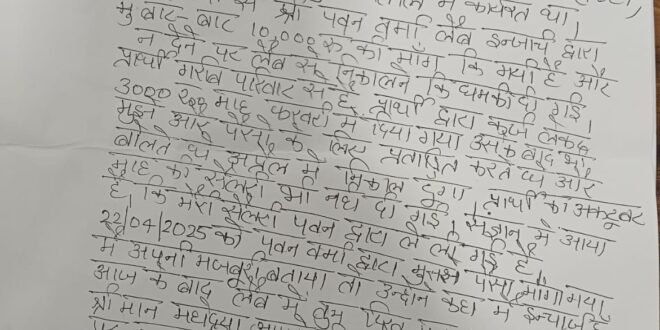 में कार्यरत था।
श्री पवन वर्मा लैब इन्चार्ज द्वारा
मु बाट-बाट 10,000 रु की माँग कि गयी है और
न देने पर लैब से निकालने कि धमकी दी गई।
प्रार्थी गरीब परिवार से है प्रार्थी द्वारा कर्ज लेकर
3000 रु माह फरवरी में दिया गया उसके बाद भी
मुझे और पैसो के लिए प्रताड़ित करते थे और
बोलते थे अप्रैल में निकाल दूगा। प्रार्थी का अक्टूबर
माह की सैलरी भी नहीं दी गई। संज्ञान में आया
है, कि मेरी सैलरी पवन द्वारा ले ली गई है,
22/04/2025 को पवन वर्मा द्वारा मुझसे पैसा माँगा गया
मैं अपनी मजबूरी बताया तो उन्होने कहा मैं इन्चार्ज
आज के बाद लैब में तुम
श्री मान महोदया